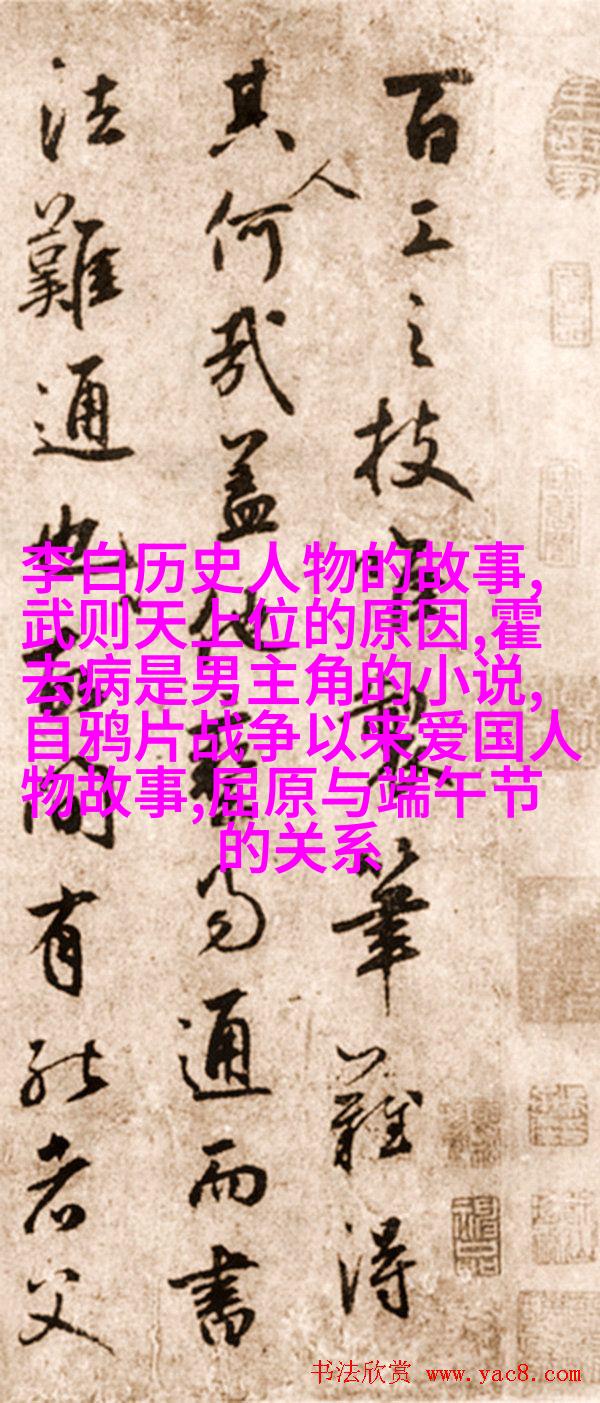 百工之技筆難得
其人何哉蓋他藝易通而書
法難通也間有能者父
李白历史人物的故事,
武则天上位的原因,霍
去病是男主角的小说,
自鸦片战争以来爱国人
物故事,屈原与端午节
的关系
书法欣赏 www.yac8.com